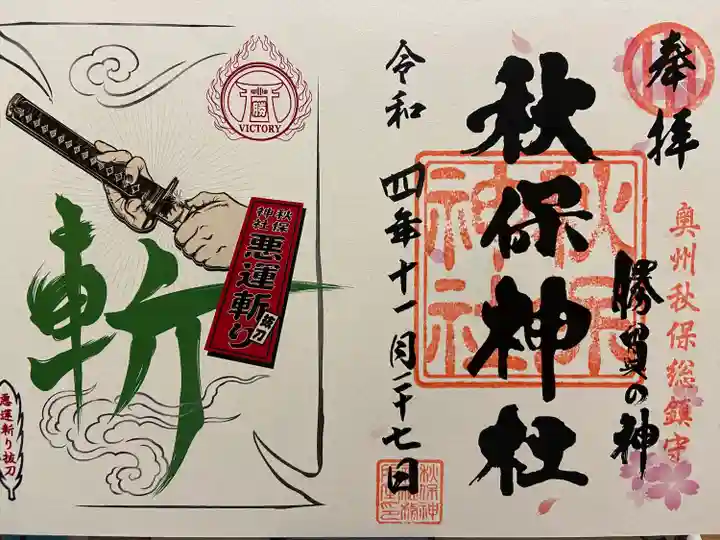 奉拝
奥州秋保総鎮守
勝負の神
秋保神社
秋保
神社
令和四年十一月二十七日
勝
VICTORY
秋保
神社
悪運斬り
抜刀
斬
悪運斬り抜刀